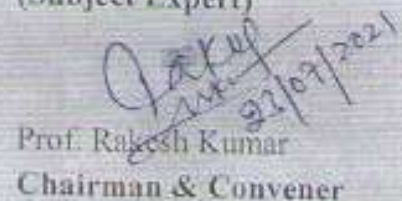 (Subject Expert)
23/07/2021
Prof. Rakesh Kumar
Chairman & Convener